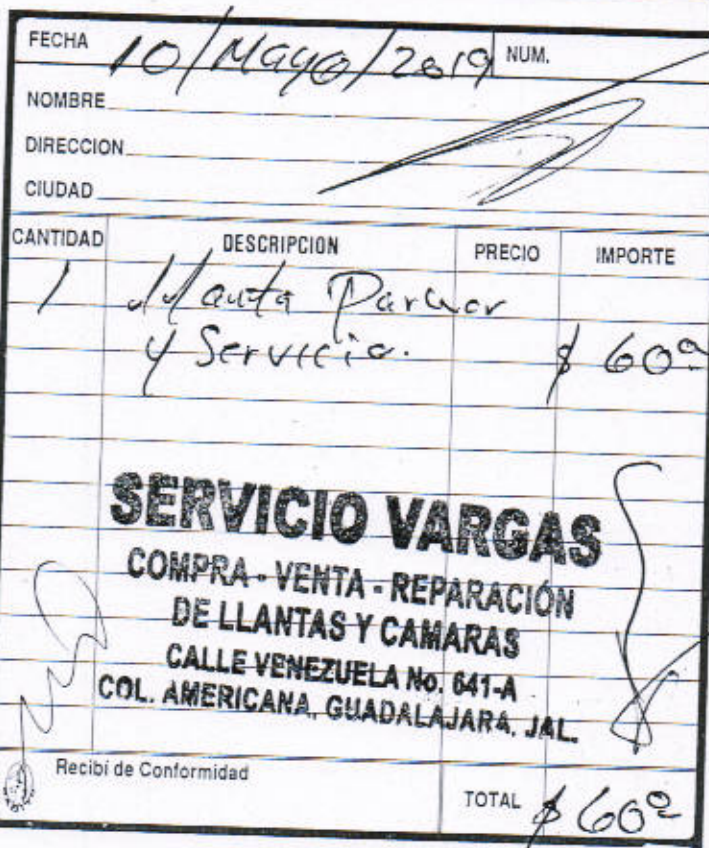 FECHA 10/Mayo/2019 NUM.
NOMBRE
DIRECCION
CIUDAD
CANTIDAD DESCRIPCION PRECIO IMPORTE
1 llanta
y Servicio. $ 60º
SERVICIO VARGAS
COMPRA - VENTA - REPARACIÓN
DE LLANTAS Y CAMARAS
CALLE VENEZUELA No. 641-A
COL. AMERICANA, GUADALAJARA, JAL.
Recibí de Conformidad
TOTAL $ 60º